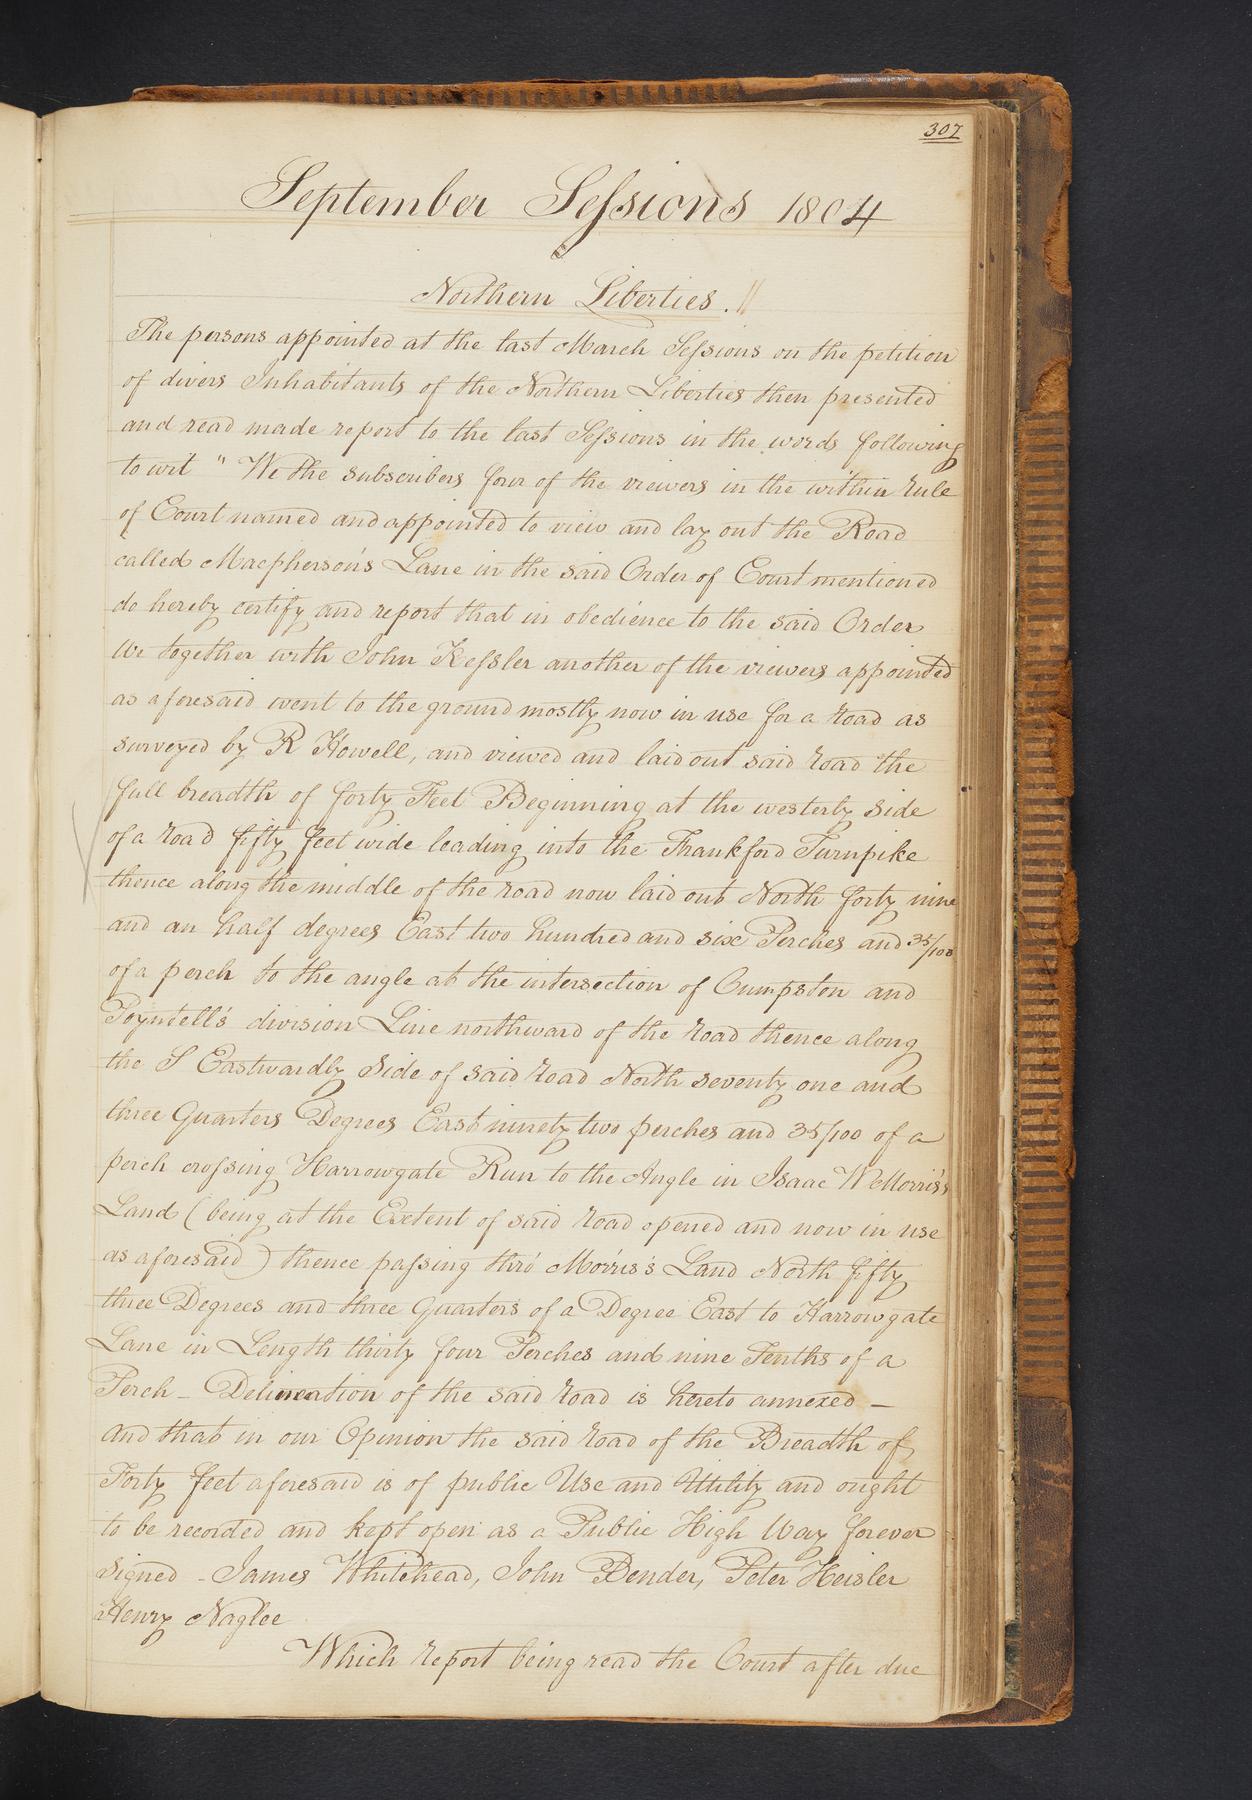 307
September Sessions 1804
Northern Liberties.
The persons appointed at the last March Sessions on the petition
of divers Inhabitants of the Northern Liberties then presented
and read made report to the last Sessions in the words following
to wit " We the subscribers four of the viewers in the within rule
of Court named and appointed to view and lay out the Road
called Macpherson's Lane in the said Order of Court mentioned
do hereby certify and report that in obedience to the said Order
we together with John Kessler another of the viewers appointed
as aforesaid went to the ground mostly now in use for a Road as
surveyed by R Howell, and viewed and laid out said road the
full breadth of forty Feet Beginning at the westerly side
of a road fifty feet wide leading into the Frankford Turnpike
thence along the middle of the road now laid out North forty nine
and an half degrees East two hundred and six Perches and 35/100
of a perch to the angle at the intersection of Cumpston and
Poyntell's division Line northward of the road thence along
the S Eastwardly Side of said road North seventy one and
three Quarters Degrees East ninety two perches and 35/100 of a
perch crossing Harrowgate Run to the Angle in Isaac W Morris's
Land (being at the Extent of said road opened and now in use
as aforesaid) thence passing thro' Morris's Land North fifty
three Degrees and three Quarters of a Degree East to Harrowgate
Lane in Length thirty four Perches and nine Tenths of a
Perch - Delineation of the said road is hereto annexed -
and that in our Opinion the said road of the Breadth of
Forty feet aforesaid is of public Use and Utility and ought
to be recorded and kept open as a Public High Way forever
Signed - James Whitehead, John Bender, Peter Heisler
Henry Naglee
Which report being read the Court after due